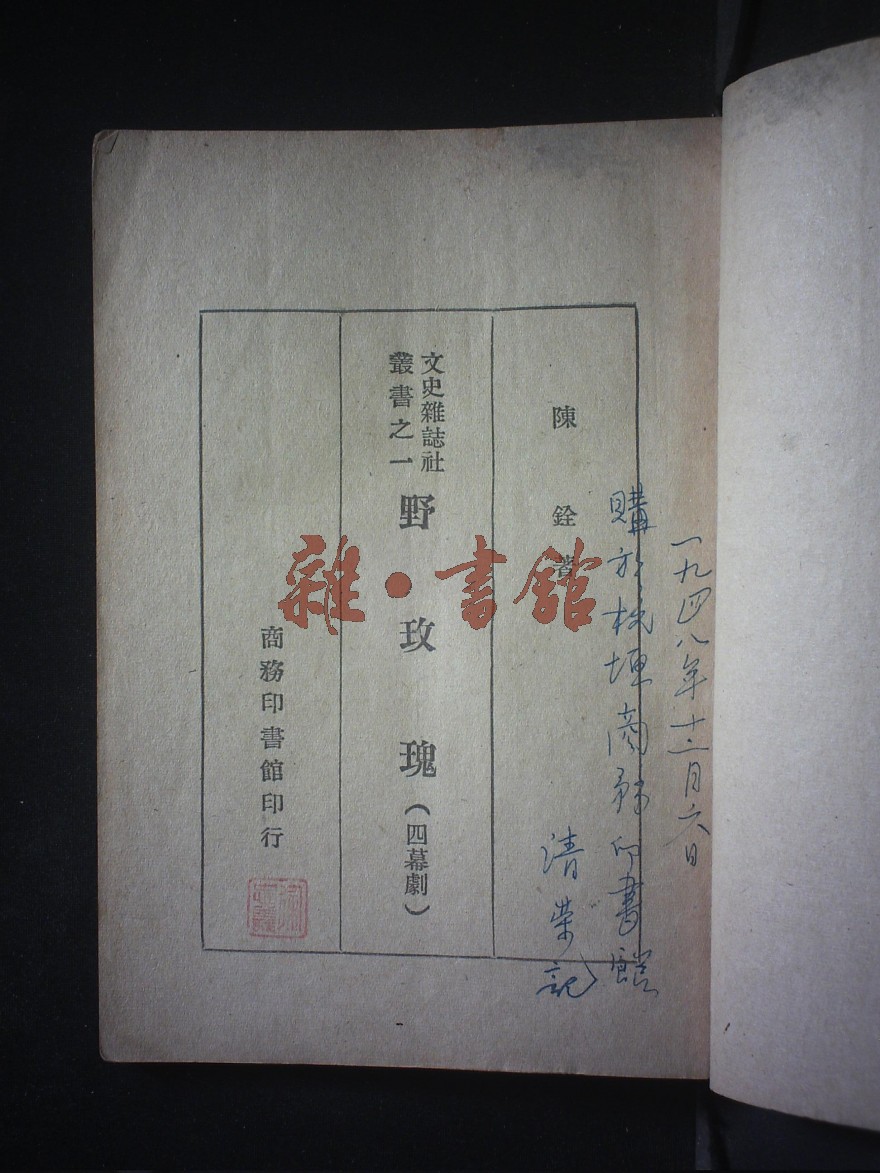 一九四八年十二月六日
購於桃埂商務印書館
清荣記
陳銓著
文史雜誌社
叢書之一
野玫瑰（四幕劇）
商務印書館印行
雜·書館